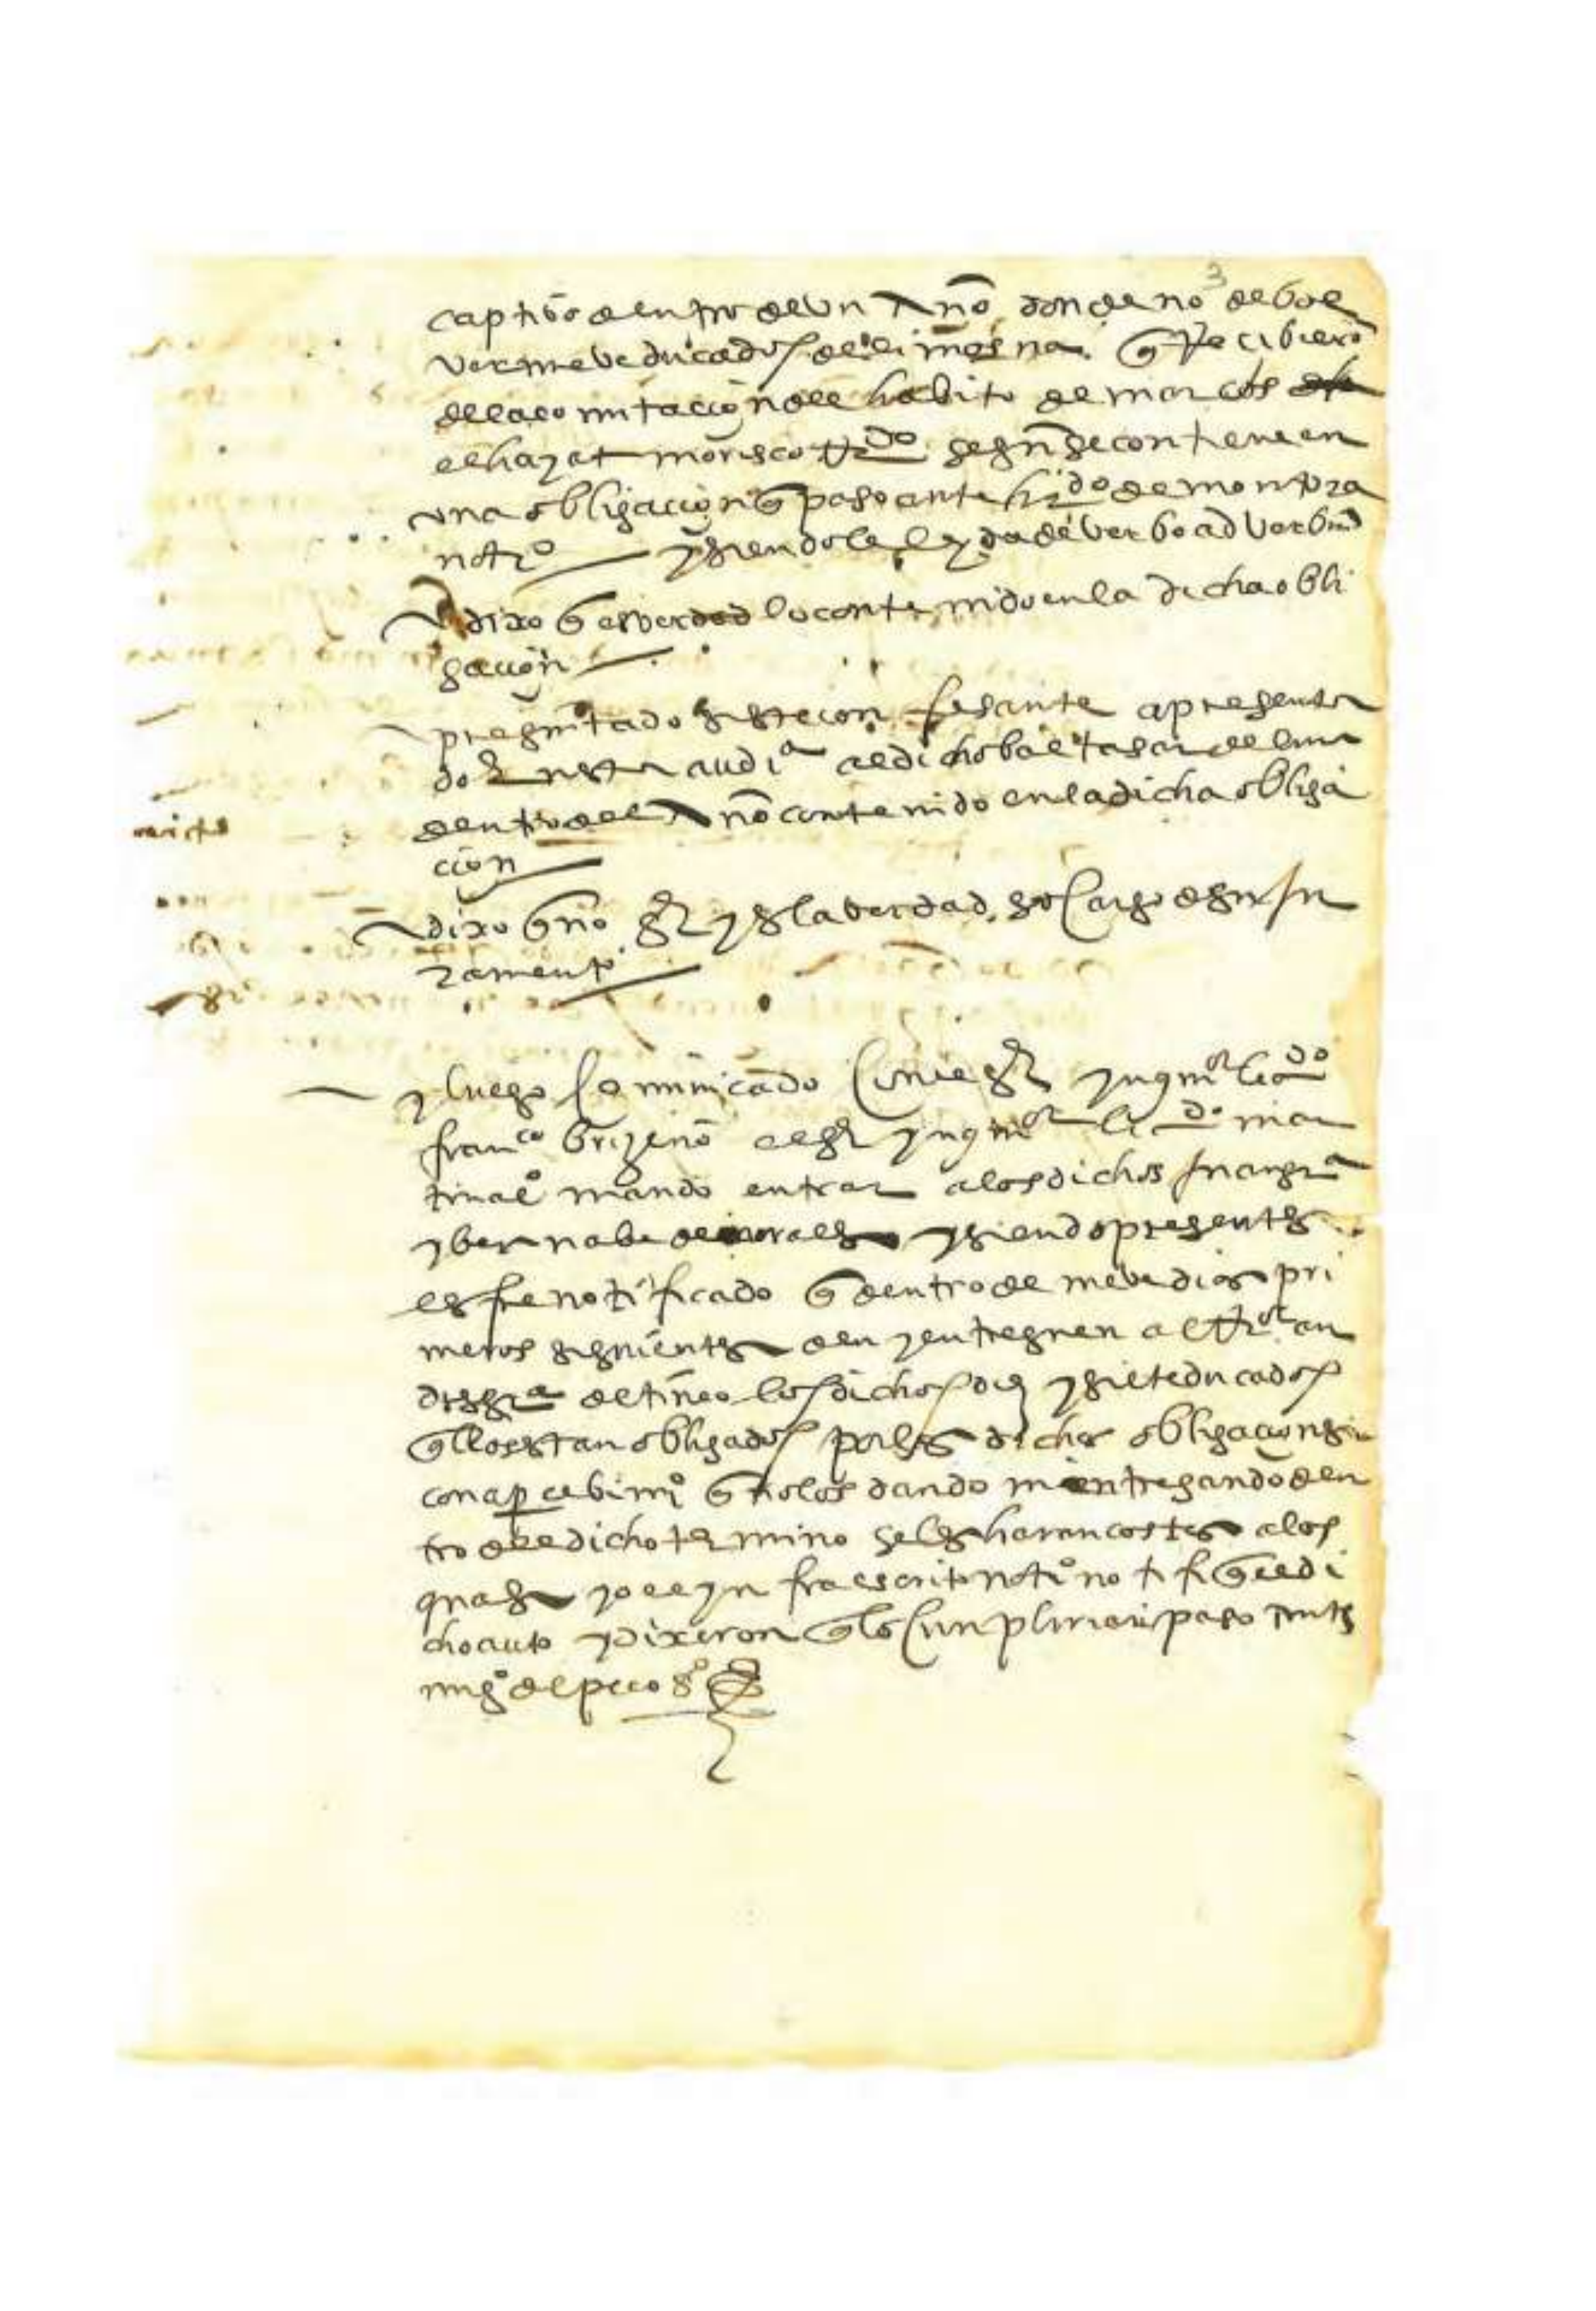 3
captibo dentro de un año donde no de bol
ver nueve ducados de limosna q Recibiero
de la comutacion del habito de marcos
el hayat morisco segn se contiene en
una obligacion q paso ante de montoza
notro y siendole leyda de verbo ad verbum
dixo q es verdad lo contenido en la dicha obli
gacion
preguntado si este confesante a presenta
do en esta audia al dicho baltasar de luna
dentro del año contenido en la dicha obliga
cion
dixo q no sr y es la verdad so cargo de su ju
ramento
y luego comunicado con el sr ynqor licdo
franco brizeño el sr ynqor licdo mar
tinal mando entrar a los dichos
y bernabe de morales y siendo presentes
les fue notificado q dentro de nueve dias pri
meros siguientes den y entreguen al an
de tineo los dichos diez y siete ducados
q llos estan obligados por las dichas obligaciones
con apercebimio q no los dando ni entregando den
tro del dicho termino se les haran costas a los
quales yo el yn fraescrito notro notifiq el di
cho auto y dixeron q lo cunpliran paso ante
mi go del peco so